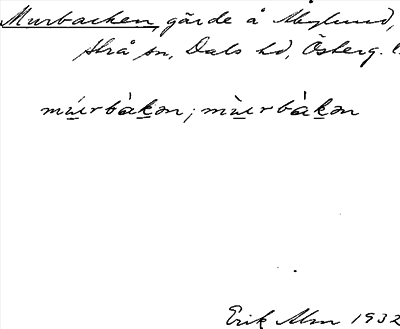 Murbacken, gärde å Åbylund,
Strå sn, Dals hd, Österg. l.
mùrbàkən; mùrbàkən
Erik Alm 1932